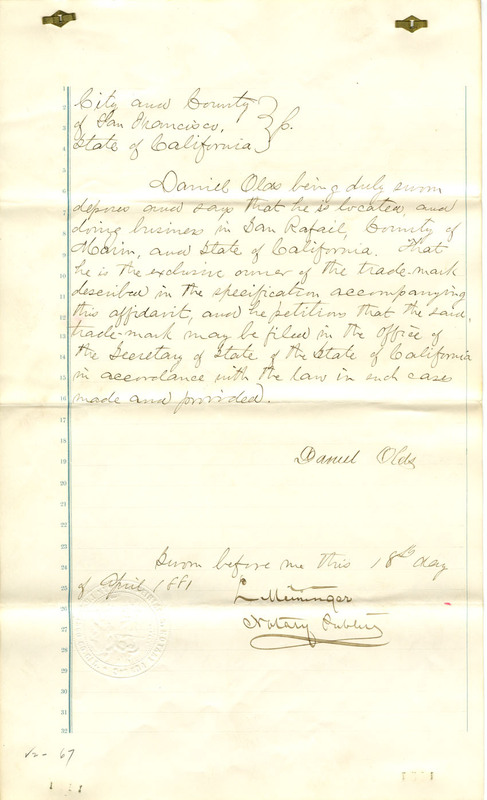 City and County
of San Francisco,
State of California
Daniel Olds being duly sworn
deposes and says that he is located, and
doing business in San Rafail, County of
Marin, and State of California. That
he is the exclusive owner of the trade-mark
described in the specification accompanying
this affidavit, and he petitions that the said
trade-mark may be filed in the Office of
the Secretary of State of the State of California
in accordance with the law in such cases
made and provided.
Daniel Olds
Sworn before me this 18th day
of April 1881
L Meininger
Notary Public
67
1
2
3
4
5
6
7
8
9
10
11
12
13
14
15
16
17
18
19
20
21
22
23
24
25
26
27
28
29
30
31
32